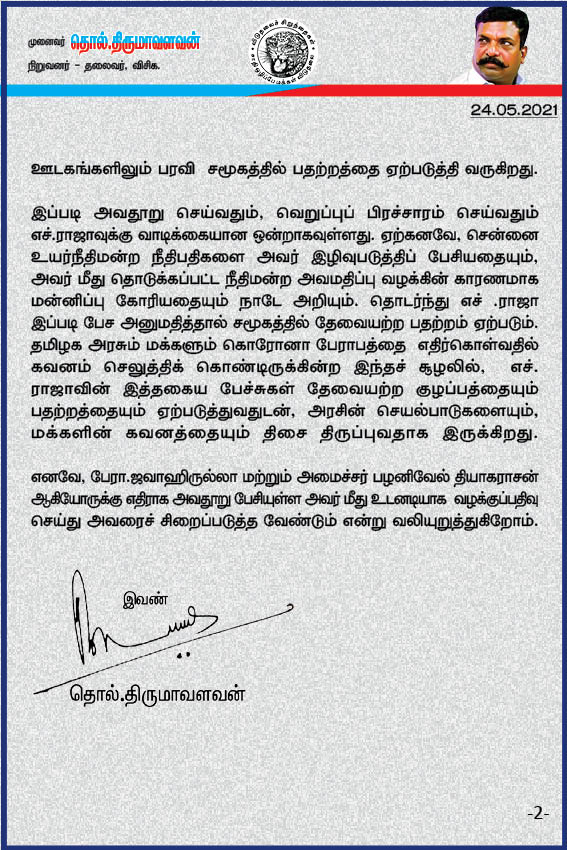 முனைவர் தொல்.திருமாவளவன்
நிறுவனர் - தலைவர், விசிக.
விடுதலைச் சிறுத்தைகள்
24.05.2021
ஊடகங்களிலும் பரவி சமூகத்தில் பதற்றத்தை ஏற்படுத்தி வருகிறது.
இப்படி அவதூறு செய்வதும், வெறுப்புப் பிரச்சாரம் செய்வதும்
எச்.ராஜாவுக்கு வாடிக்கையான ஒன்றாகவுள்ளது. ஏற்கனவே, சென்னை
உயர்நீதிமன்ற நீதிபதிகளை அவர் இழிவுபடுத்திப் பேசியதையும்,
அவர் மீது தொடுக்கப்பட்ட நீதிமன்ற அவமதிப்பு வழக்கின் காரணமாக
மன்னிப்பு கோரியதையும் நாடே அறியும். தொடர்ந்து எச் .ராஜா
இப்படி பேச அனுமதித்தால் சமூகத்தில் தேவையற்ற பதற்றம் ஏற்படும்.
தமிழக அரசும் மக்களும் கொரோனா பேராபத்தை எதிர்கொள்வதில்
கவனம் செலுத்திக் கொண்டிருக்கின்ற இந்தச் சூழலில், எச்.
ராஜாவின் இத்தகைய பேச்சுகள் தேவையற்ற குழப்பத்தையும்
பதற்றத்தையும் ஏற்படுத்துவதுடன், அரசின் செயல்பாடுகளையும்,
மக்களின் கவனத்தையும் திசை திருப்புவதாக இருக்கிறது.
எனவே, பேரா.ஜவாஹிருல்லா மற்றும் அமைச்சர் பழனிவேல் தியாகராசன்
ஆகியோருக்கு எதிராக அவதூறு பேசியுள்ள அவர் மீது உடனடியாக வழக்குப்பதிவு
செய்து அவரைச் சிறைப்படுத்த வேண்டும் என்று வலியுறுத்துகிறோம்.
இவண்
தொல்.திருமாவளவன்
-2-